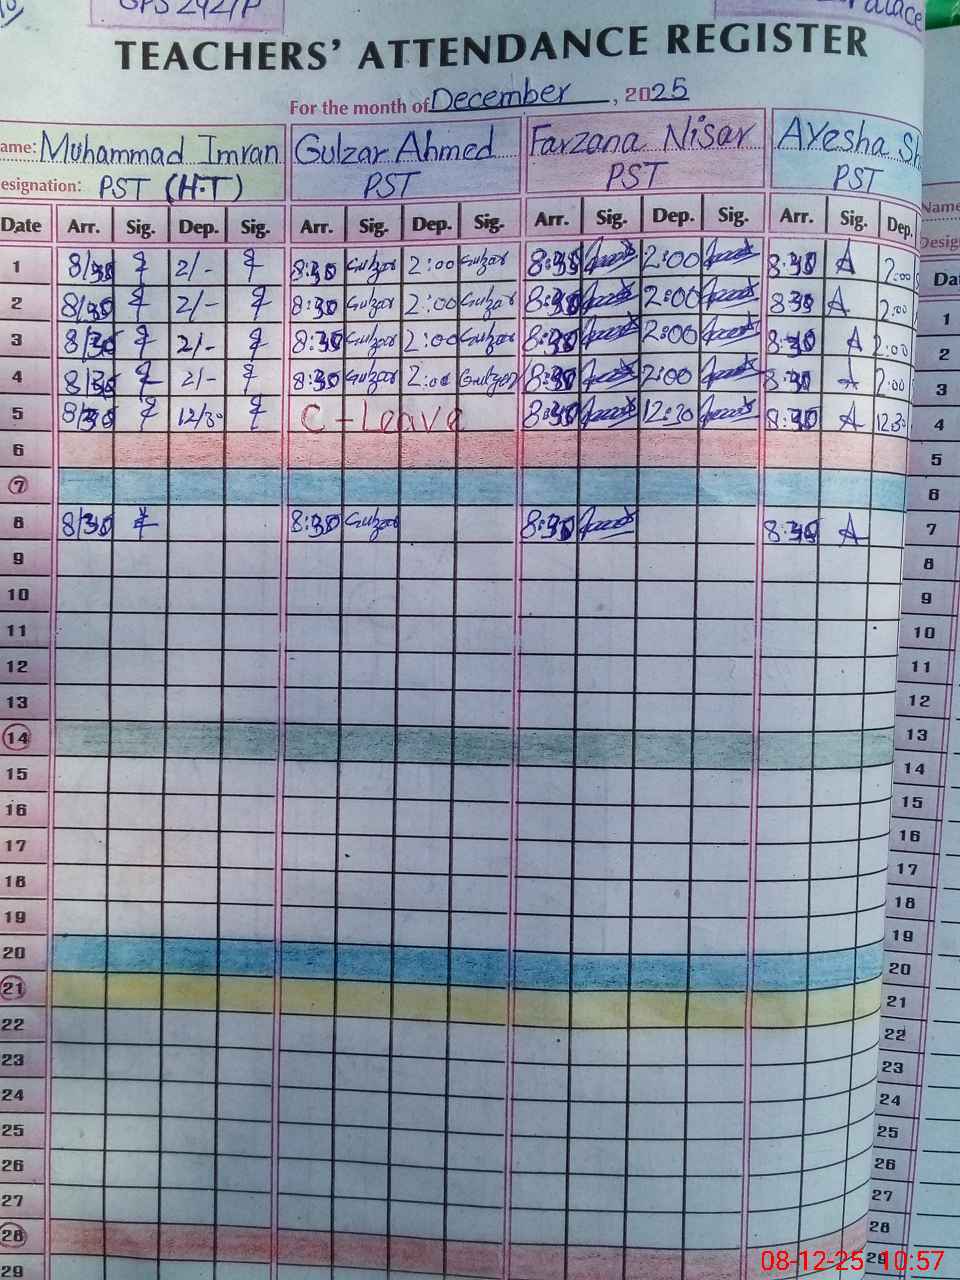 GPS 242/P
TEACHERS' ATTENDANCE REGISTER
For the month of December, 2025
ame: Muhammad Imran Gulzar Ahmed Farzana Nisar Ayesha Sh
esignation: PST (H.T) PST PST PST
Date Arr. Sig. Dep. Sig. Arr. Sig. Dep. Sig. Arr. Sig. Dep. Sig. Arr. Sig. Dep.
1 8/30 2/- 8:30 Gulzar 2:00 Gulzar 8:30 2:00 8:30 A 2:00
2 8/30 2/- 8:30 Gulzar 2:00 Gulzar 8:30 2:00 830 A 2:00
3 8/30 2/- 8:30 Gulzar 2:00 Gulzar 8:30 2:00 8:30 A 2:00
4 8/30 2/- 8:30 Gulzar 2:00 Gulzar 8:30 2:00 8:30 A 2:00
5 8/30 12/30 C-Leave 8:30 12:30 8:30 A 12:30
6
7
8 8/30 8:30 Gulzar 8:30 8:30 A
9
10
11
12
13
14
15
16
17
18
19
20
21
22
23
24
25
26
27
28
29
Name
Desig
Dat
1
2
3
4
5
6
7
8
9
10
11
12
13
14
15
16
17
18
19
20
21
22
23
24
25
26
27
28
29
08-12-25 10:57